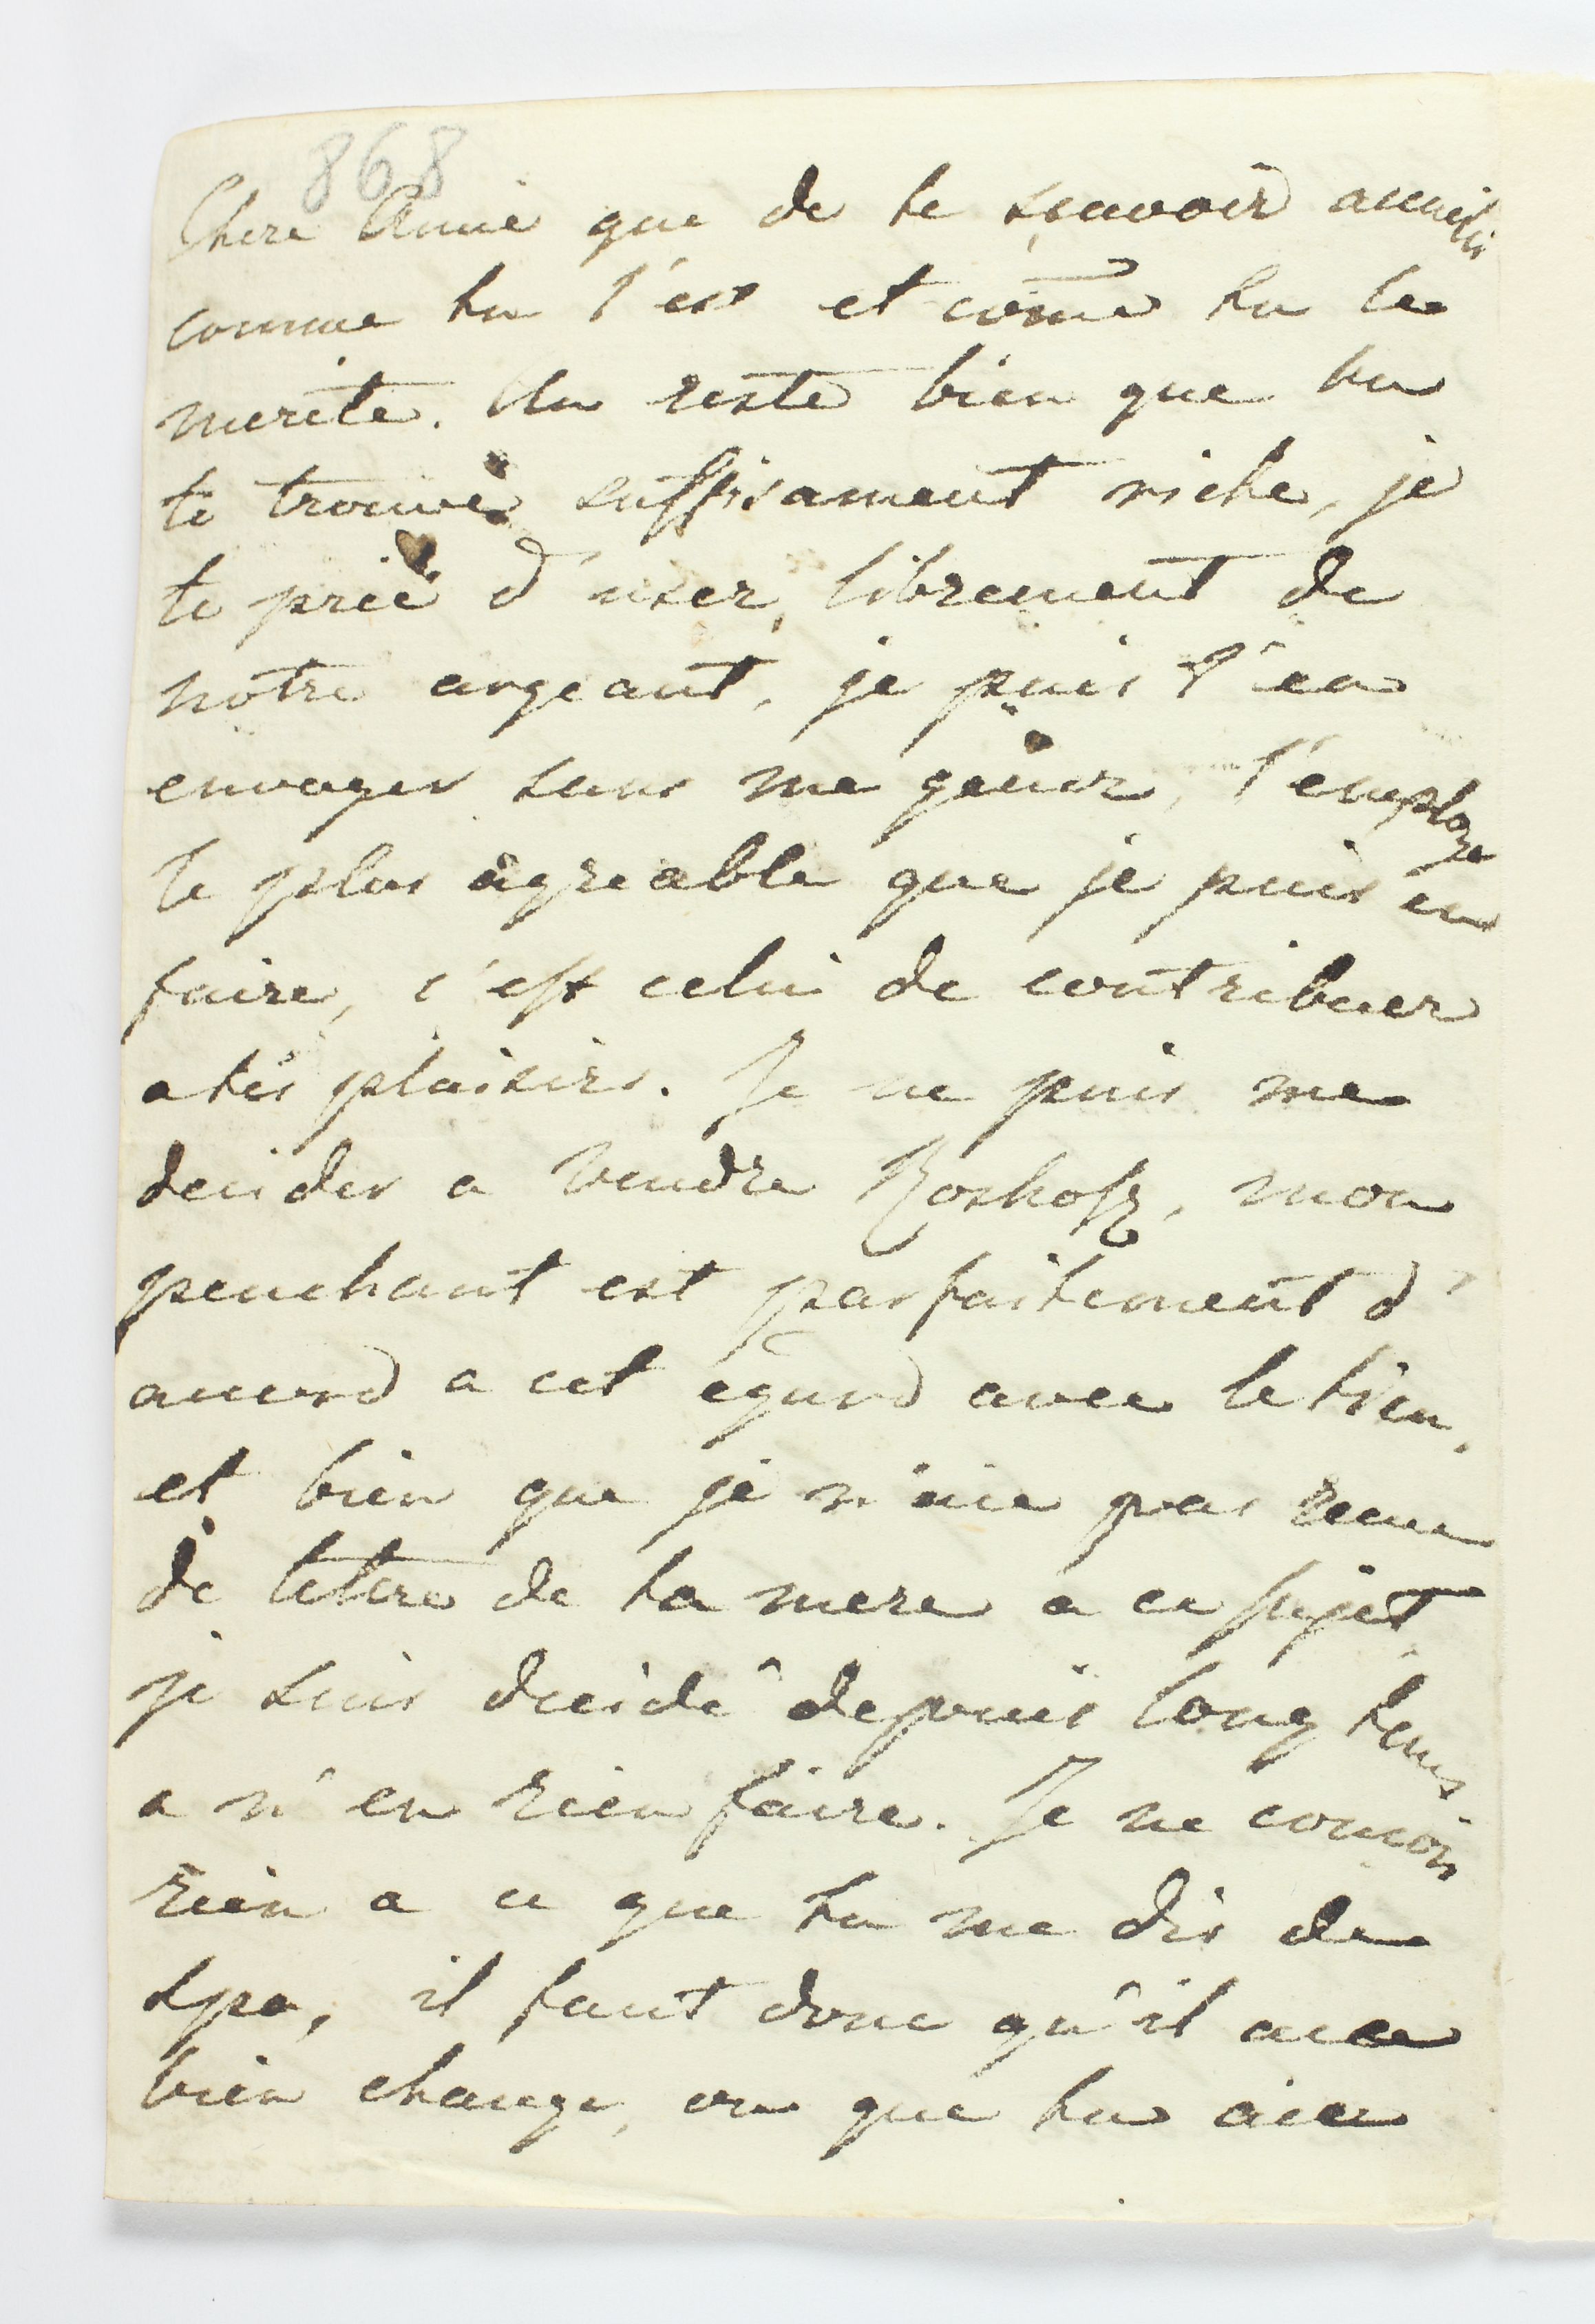 868
Chere Amie que de te sçavoir accueilli
comme tu l'est et come tu le
merite. Au reste bien que tu
te trouve suffisament riche, je
te prie d'user librement de
notre argeant, je puis t'en
envoyer sans me gêner, l'employe
le plus agreable que je puis en
faire, c'est celui de contribuer
a tes plaisirs. Je ne puis me
decider a vendre Roskoff, mon
penchant est parfaitement d'
accord a cet egard avec le tien,
et bien que je n'aie pas recue
de lettre de ta mere a ce sujet,
je suis decidé depuis long tems
a n'en rien faire. Je ne concois
rien a ce que tu me dis de
Spa, il faut donc qu'il aie
bien change, ou que tu aie